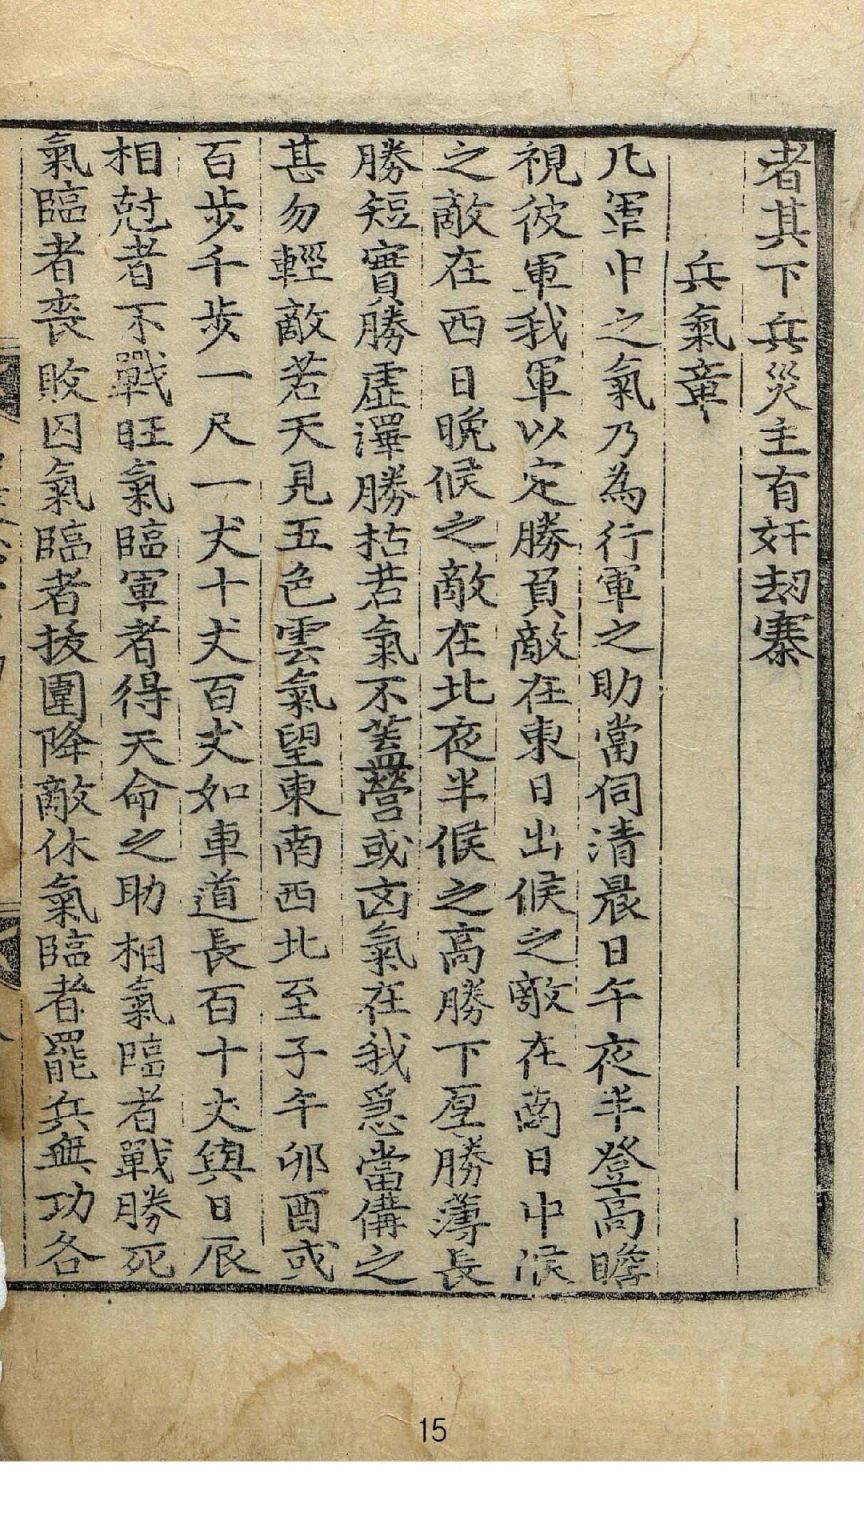 者其下兵災主有奸刼寨
兵氣章
凡軍中之氣乃為行軍之助當伺清晨日午夜半登高瞻
視彼軍我軍以定勝負敵在東日出候之敵在南日中候
之敵在西日晚候之敵在北夜半候之高勝下厚勝薄長
勝短實勝虛澤勝枯若氣不盖營或凶氣在我急當備之
甚勿輕敵若天見五色雲氣望東南西北至子午卯酉或
百步千步一尺一丈十丈百丈如車道長百十丈與日辰
相尅者不戰旺氣臨軍者得天命之助相氣臨者戰勝死
氣臨者喪敗囚氣臨者拔圍降敵休氣臨者罷兵無功各
15